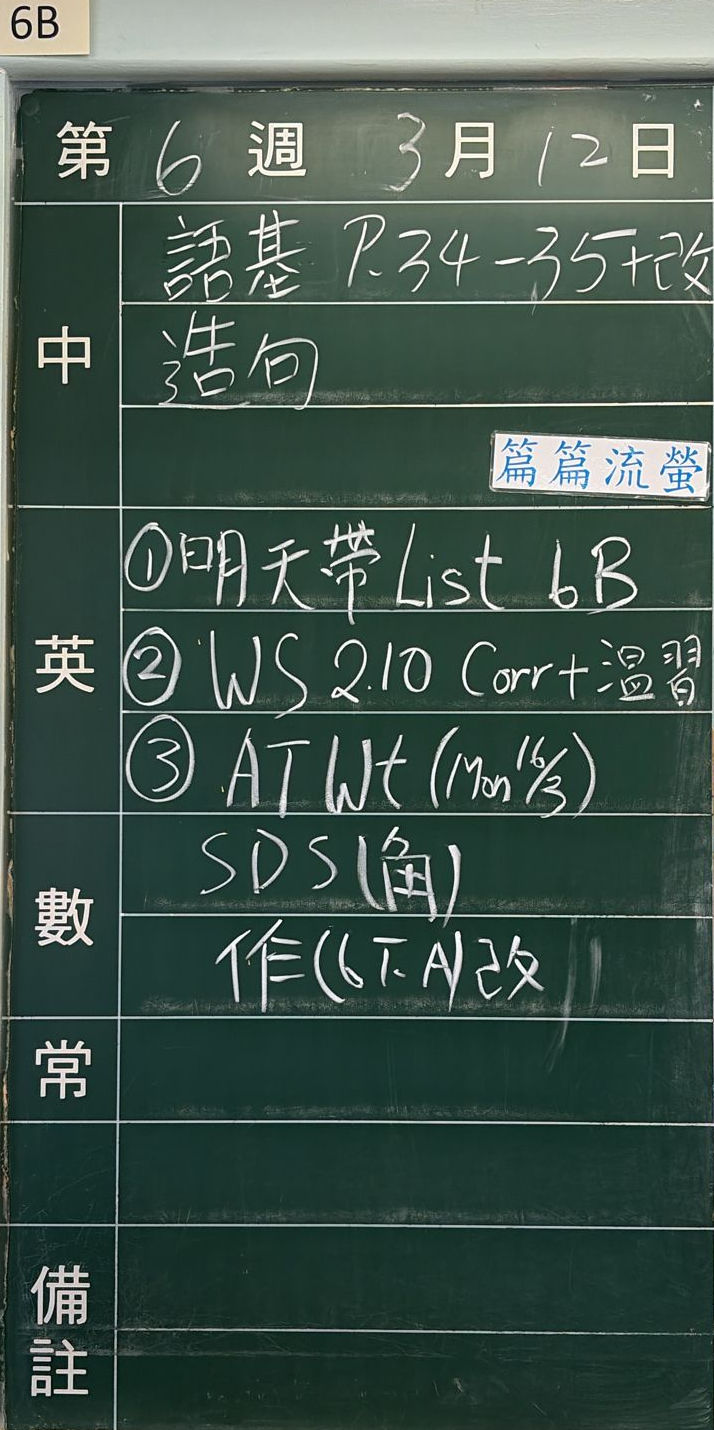 6B
第 6 週 3 月 12 日
中
語基 P.34-35+改
造句
篇篇流螢
英
①明天帶 List 6B
② WS 2.10 Corr+溫習
③ AT Wt (Mon 16/3)
數
SDS(角)
作(6下A)改
常
備註